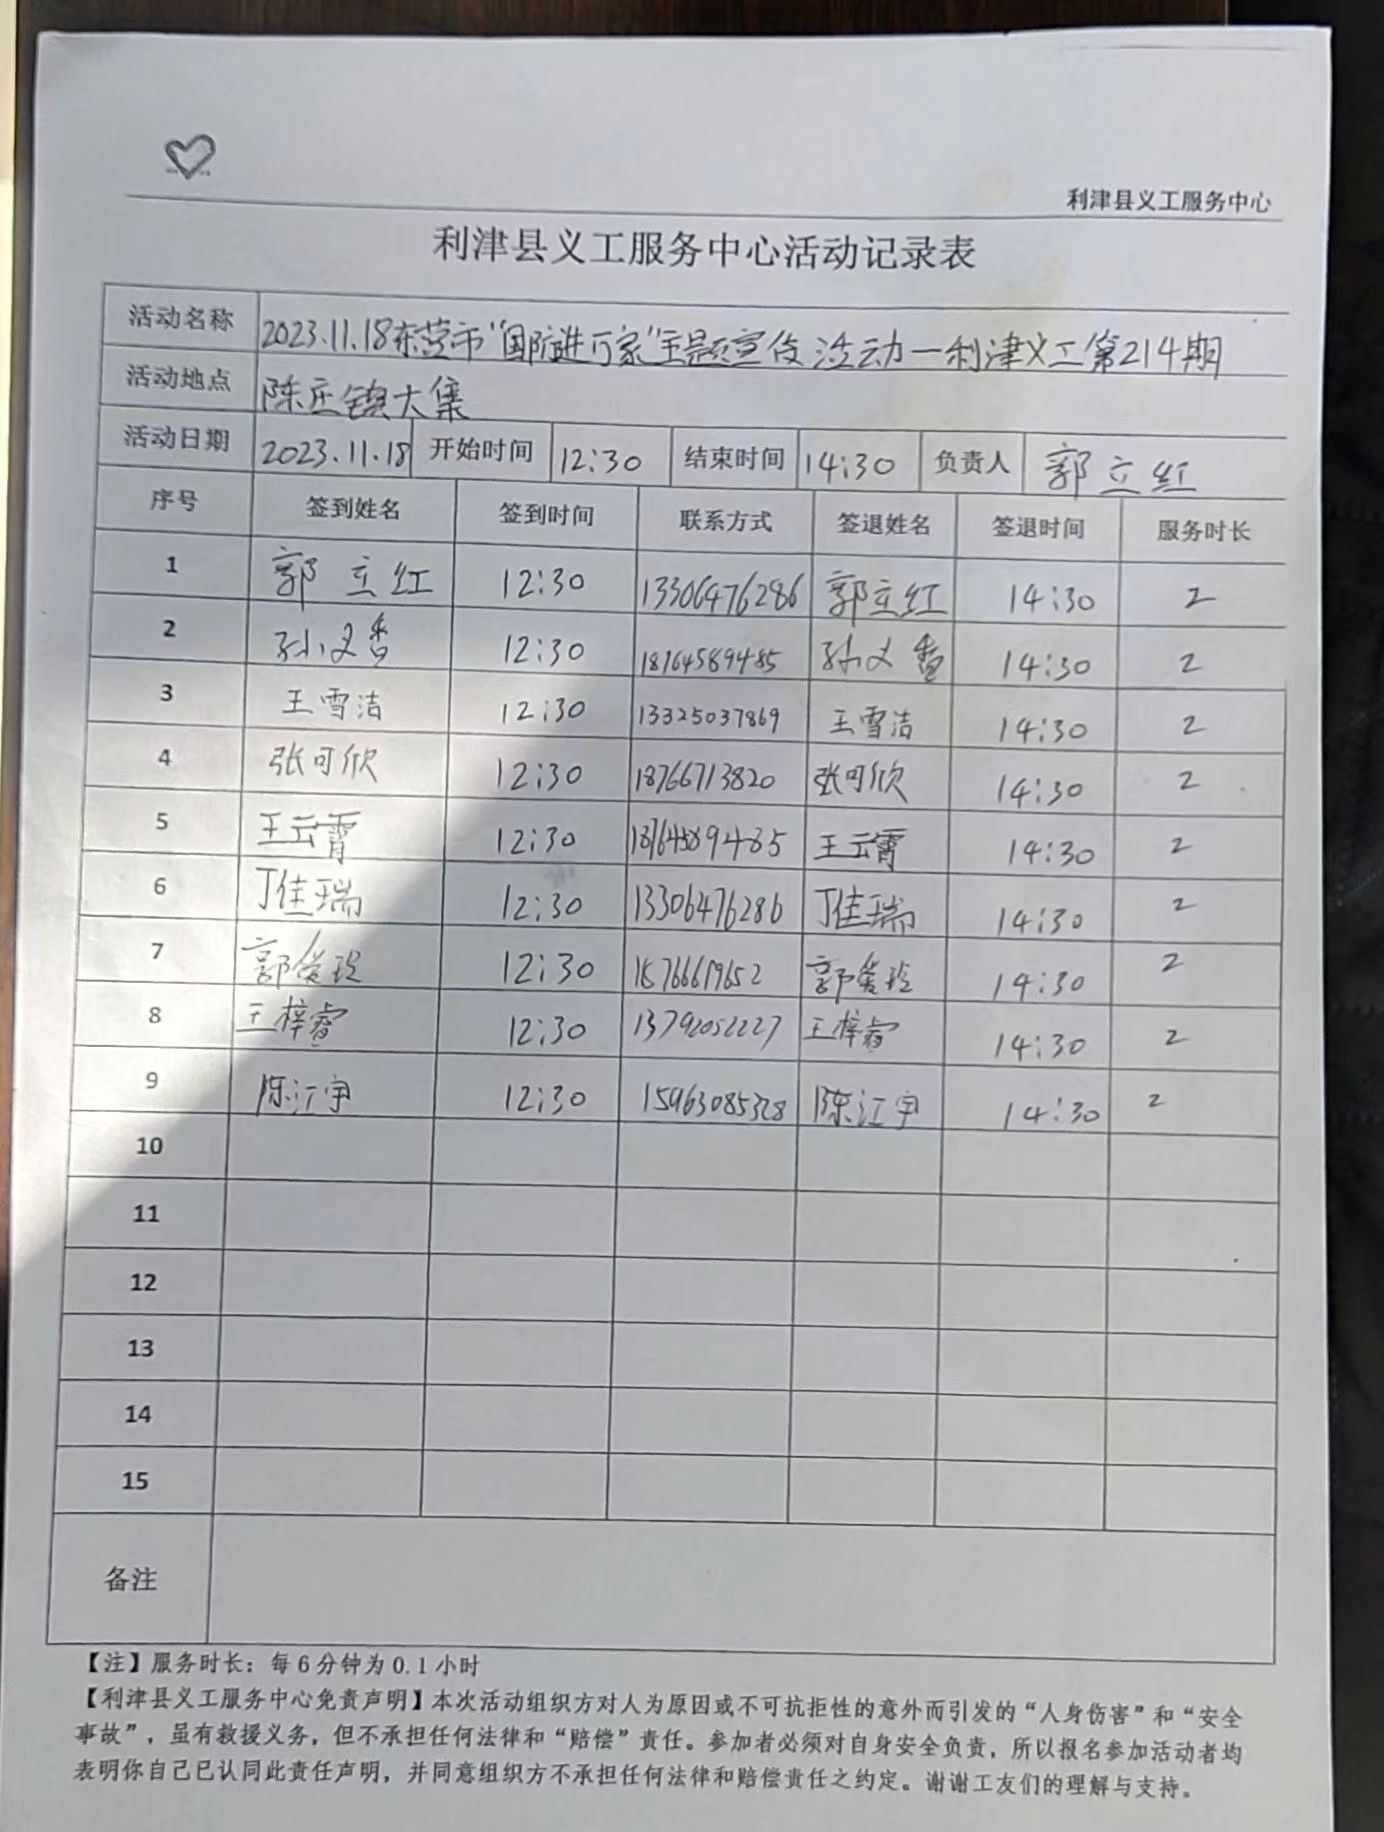 利津县义工服务中心
利津县义工服务中心活动记录表
活动名称 2023.11.18东营市“国防进万家”主题宣传活动—利津义工第214期
活动地点 陈庄镇大集
活动日期 2023.11.18 开始时间 12:30 结束时间 14:30 负责人 郭立红
序号 签到姓名 签到时间 联系方式 签退姓名 签退时间 服务时长
1 郭立红 12:30 13306476286 郭立红 14:30 2
2 孙文香 12:30 18764589485 孙文香 14:30 2
3 王雪洁 12:30 13325037869 王雪洁 14:30 2
4 张可欣 12:30 18766713820 张可欣 14:30 2
5 王云霄 12:30 18764589485 王云霄 14:30 2
6 丁佳瑞 12:30 13306476286 丁佳瑞 14:30 2
7 12:30 14:30 2
8 王梓睿 12:30 13792052227 王梓睿 14:30 2
9 陈江宇 12:30 15963085328 陈江宇 14:30 2
10
11
12
13
14
15
备注
【注】服务时长：每6分钟为0.1小时
【利津县义工服务中心免责声明】本次活动组织方对人为原因或不可抗拒性的意外而引发的“人身伤害”和“安全
事故”，虽有救援义务，但不承担任何法律和“赔偿”责任。参加者必须对自身安全负责，所以报名参加活动者均
表明你自己已认同此责任声明，并同意组织方不承担任何法律和赔偿责任之约定。谢谢工友们的理解与支持。